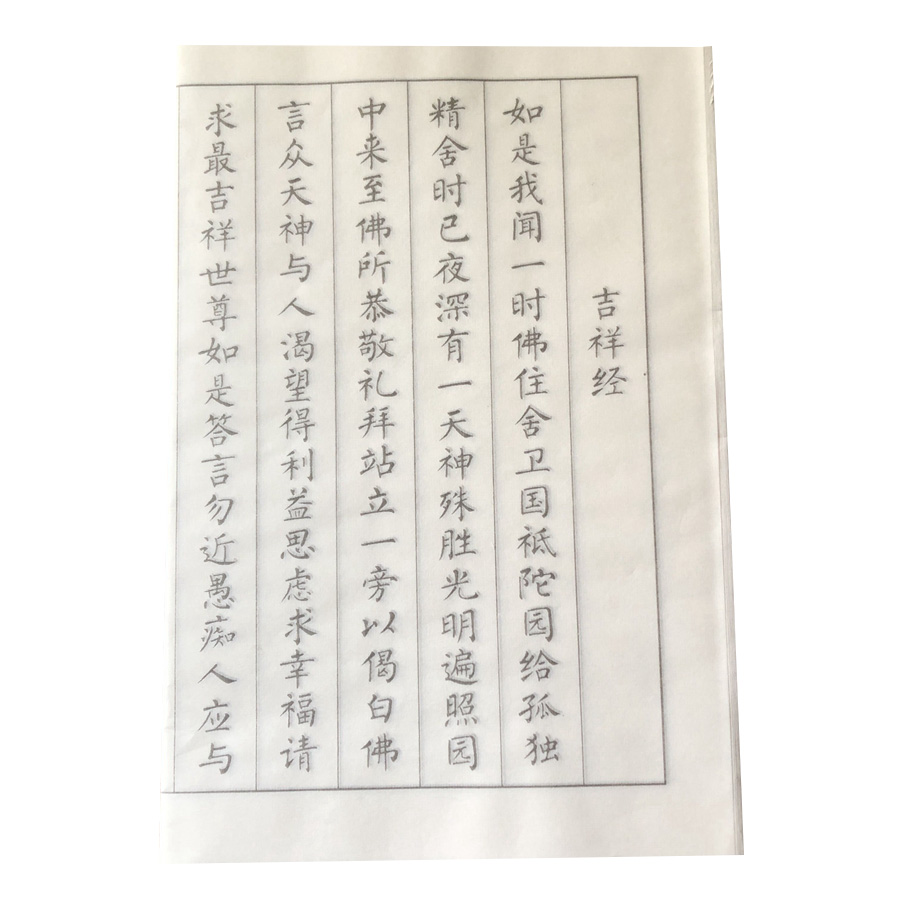 吉祥经
如是我闻一时佛住舍卫国祗陀园给孤独
精舍时已夜深有一天神殊胜光明遍照园
中来至佛所恭敬礼拜站立一旁以偈白佛
言众天神与人渴望得利益思虑求幸福请
求最吉祥世尊如是答言勿近愚痴人应与